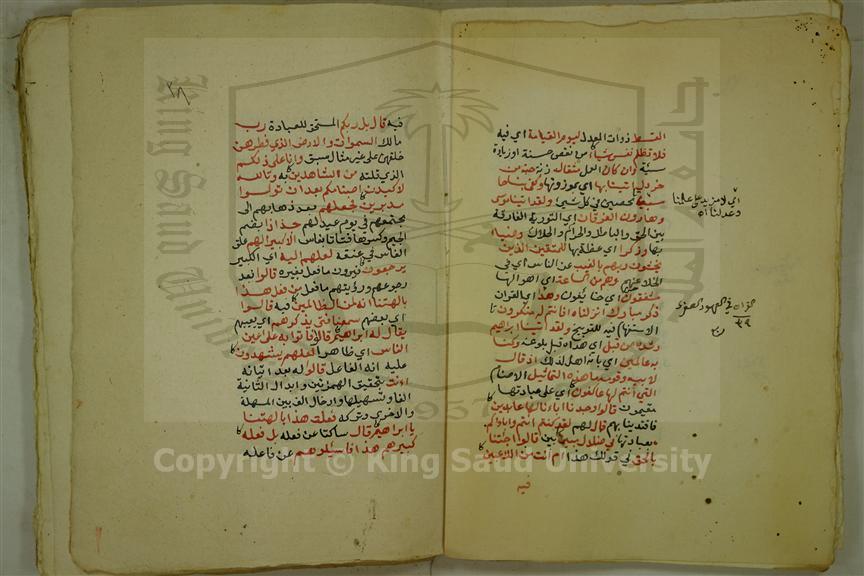 القسط ذوات العدل ليوم القيامة اي فيه
فلا تظلم نفس شيأ من نقص حسنة او زيادة
سيئة وان كان العمل مثقال زنة حبة من
خردل اتينا بها اي بموزونها وكفى بنا
حاسبين محصين في كل شيئ ولقد اتينا موسى
وهارون الفرقان اي التورية الفارقة
بين الحق والباطل والحرام والحلال وضياء
بها وذكرا اي عظة بها للمتقين الذين
يخشون ربهم بالغيب عن الناس اي في
الخلاء عنهم وهم من الساعة اي اهوالها
مشفقون اي خائفون وهذا اي القران
ذكر مبارك انزلناه افانتم له منكرون
الاستفهام فيه للتوبيخ ولقد اتينا ابراهيم
رشده من قبل اي هداه قبل بلوغه وكنا
به عالمين اي بانه اهل لذلك اذ قال
لابيه وقومه ما هذه التماثيل الاصنام
التي انتم لها عاكفون اي على عبادتها
مقيمون قالوا وجدنا اباءنا لها عابدين
فاقتدينا بهم قال لهم لقد كنتم انتم واباؤكم
بعبادتها في ضلال مبين بين قالوا اجئتنا
بالحق في قولك هذا ام انت من اللاعبين
فيه
اي لا مزيد على علمنا
وعدلنا اه
٣٨
فيه قال بل ربكم المستحق للعبادة رب
مالك السموات والارض الذي فطرهن
خلقهن على غير مثال سبق وانا على ذلكم
الذي قلته من الشاهدين به وتالله
لاكيدن اصنامكم بعد ان تولوا
مدبرين فجعلهم بعد ذهابهم الى
مجتمعهم في يوم عيد لهم جذاذا بضم
الجيم وكسرها فتاتا بفاس الا كبيرا لهم علق
الفاس في عنقه لعلهم اليه اي الكبير
يرجعون فيرون ما فعل بغيره قالوا بعد
رجوعهم ورؤيتهم ما فعل من فعل هذا
بالهتنا انه لمن الظالمين فيه قالوا
اي بعضهم سمعنا فتى يذكرهم اي يعيبهم
يقال له ابراهيم قالوا فاتوا به على اعين
الناس اي ظاهرا لعلهم يشهدون
عليه انه الفاعل قالوا له بعد اتيانه
اانت بتحقيق الهمزتين وابدال الثانية
الفا وتسهيلها وادخال الف بين المسهلة
والاخرى وتركه فعلت هذا بالهتنا
يا ابراهيم قال ساكتا عن فعله بل فعله
كبيرهم هذا فاسئلوهم عن فاعله
Copyright © King Saud University
King Saud University
جامعة الملك سعود
1957